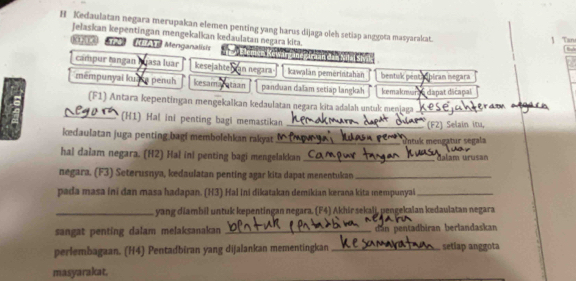 H Kedaulatan negara merupakan elemen penting yang harus dijaga oleh setiap anggota masyarakat.
Jelaskan kepentingan mengekalkan kedaulatan negara kita.
TP6 KBAT Menganalisis Elemen Kewarganegaraan dan Nilai Sivik
campur tangan kuasa luar
kesejahteraan negara
kawalan pemerintahan
bentuk pentadbiran negara
mempunyai kuasa penuh
kesamarataan
panduan dalam setiap langkah
kemakmuran dapat dicapai
Bab 01
(F1) Antara kepentingan mengekalkan kedaulatan negara kita adalah untuk menjaga kesejahteraan
negara (H1) Hal ini penting bagi memastikan kemakmuran dapat dicapai (F2) Selain itu,
kedaulatan juga penting bagi membolehkan rakyat mempunyai kuasa penuh untuk mengatur segala
hal dalam negara. (H2) Hal ini penting bagi mengelakkan campur tangan kuasa luar dalam urusan
negara. (F3) Seterusnya, kedaulatan penting agar kita dapat menentukan
pada masa ini dan masa hadapan. (H3) Hal ini dikatakan demikian kerana kita mempunyai
yang diambil untuk kepentingan negara. (F4) Akhir sekali, pengekalan kedaulatan negara
sangat penting dalam melaksanakan bentuk pentadbiran negara dan pentadbiran berlandaskan
perlembagaan. (H4) Pentadbiran yang dijalankan mementingkan kesamarataan setiap anggota
masyarakat.